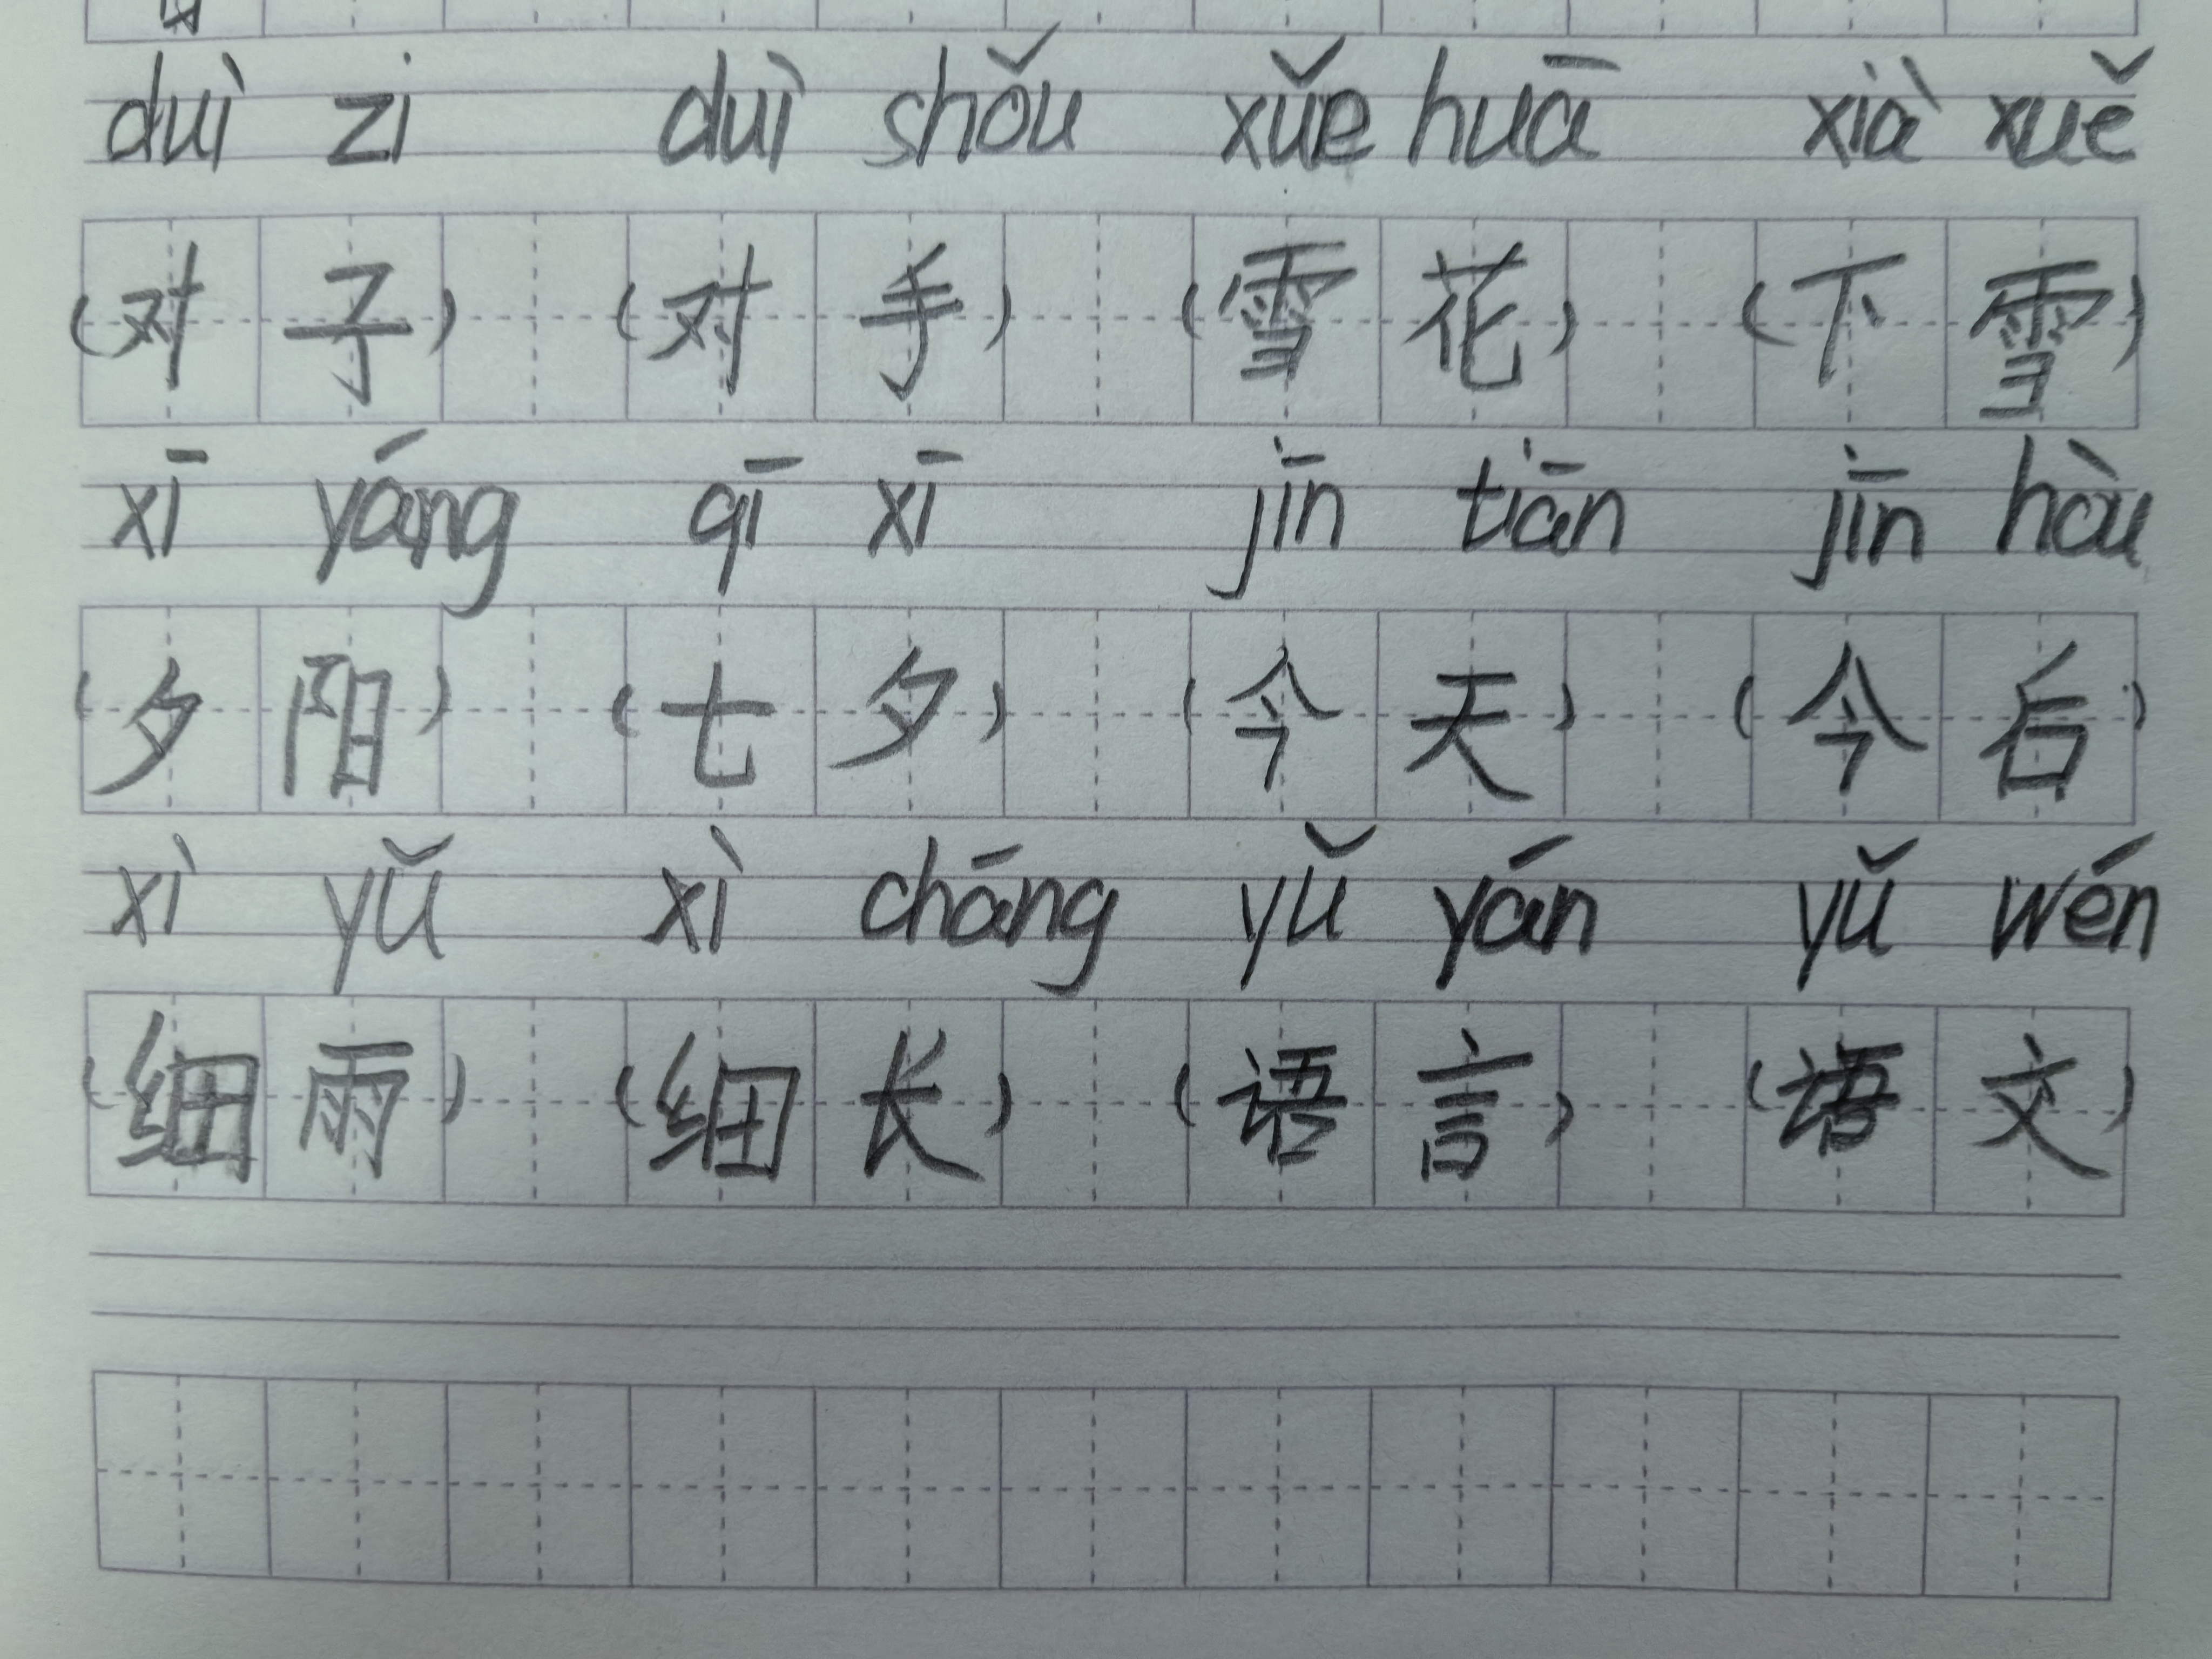 duì zi duì shǒu xǔe huā xià xuě
(对子) (对手) (雪花) (下雪)
xī yáng qī xī jīn tiān jīn hòu
(夕阳) (七夕) (今天) (今后)
xì yǔ xì cháng yǔ yán yǔ wén
(细雨) (细长) (语言) (语文)